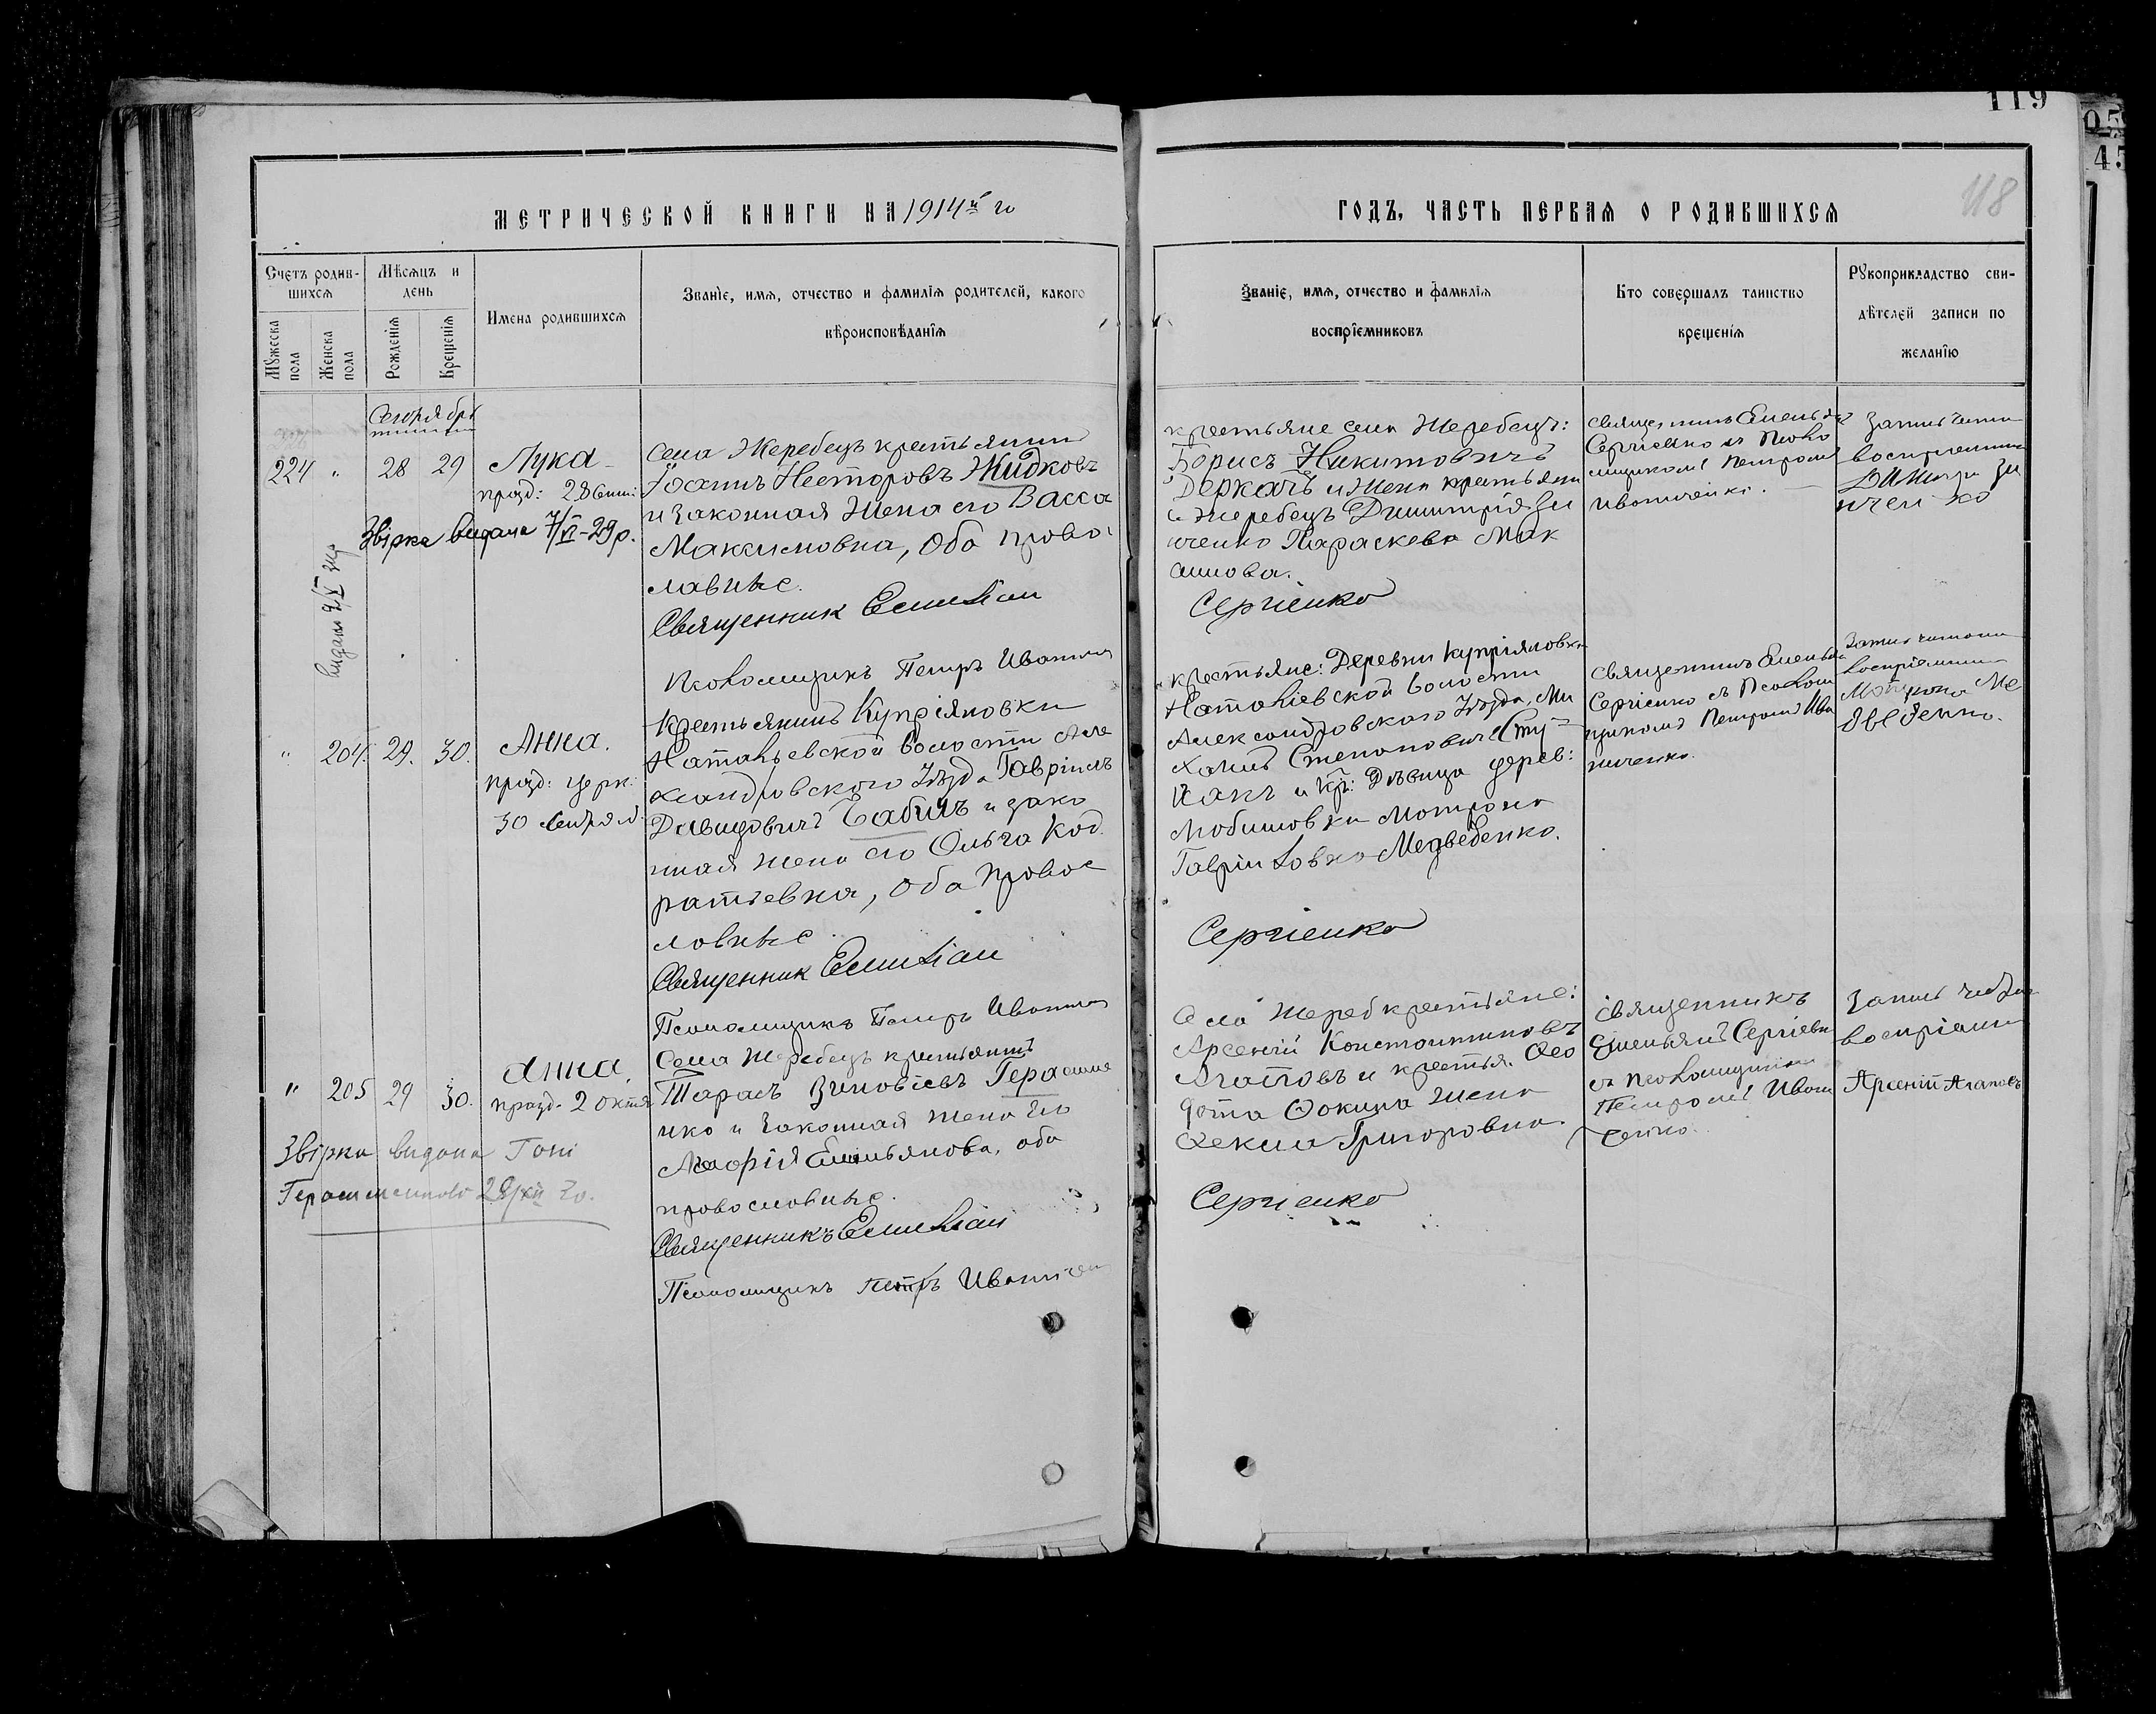 119
118
МЕТРИЧЕСКОЙ КНИГИ НА 1914й го
ГОДЪ, ЧАСТЬ ПЕРВАЯ О РОДИВШИХСЯ
Счетъ родив-
шихся
Мужеска
пола
Женска
пола
Мѣсяцъ и
день
Рожденія
Крещенія
Имена родившихся
Званіе, имя, отчество и фамилія родителей, какого
вѣроисповѣданія
Званіе, имя, отчество и фамилія
воспріемниковъ
Кто совершалъ таинство
крещенія
Рукоприкладство сви-
дѣтелей записи по
желанію
224 " 28 29
Лука
празд: 28
Звірка видана 7/VI-29р.
Села Жеребецъ крестьянинъ
Іоаннъ Несторовъ Жидковъ
и законная жена его Васса
Максимовна, оба право
лавные.
Священник Емилiан
Псаломщикъ Петръ
крестьяне села Жеребецъ:
Борисъ Никитовичъ
Деркачъ и жена крестьян
с Жеребецъ Димитрія Зи
нченко Параскева Мак
симова.
Сергіенко
Сергіенко съ Псало
мщикомъ Петромъ
воспріемникъ
Димитри Зи
нченко
" 204. 29. 30.
Анна.
празд: церк:
30
Крестьянинъ Купріяновки
Натальевской волости Але
ксандровского Уѣзда Гавріилъ
Давидовичъ Бабичъ и зако
нная жена его Ольга Код
ратьевна, оба правос
лавные
Священник Емилiан
Псаломщикъ Петръ
крестьяне: Деревни Купріяновки
Наталіевской волости
Александровского Уѣзда, Ми
хаилъ Степановичъ
и кр: Дѣвица дерев:
Любимовки Мотрона
Гавріиловна Медведенко.
Сергіенко
Сергіенко съ Псалом
щикомъ Петромъ Ива
ниченко.
воспріемница
Мотрона Ме
дведенко.
" 205 29 30.
Анна
празд. 2 октя
Звірка видана Гані
28/XII
Села Жеребецъ крестьянинъ
Тарасъ Зиновіевъ Герасиме
нко и законная жена его
Марфія Емильянова, оба
православные.
Священникъ Емилiан
Псаломщикъ Петръ
Села Жереб крестьяне:
Арсеній Константиновъ
Агаповъ и крестья. Ѳео
дота Ѳокина жена
Ѳекла Григоровна.
Сергіенко
Священникъ
Емельянъ Сергіен
съ псаломщикомъ
Петромъ Иван
ченко.
воспріемн
Арсеній Агаповъ